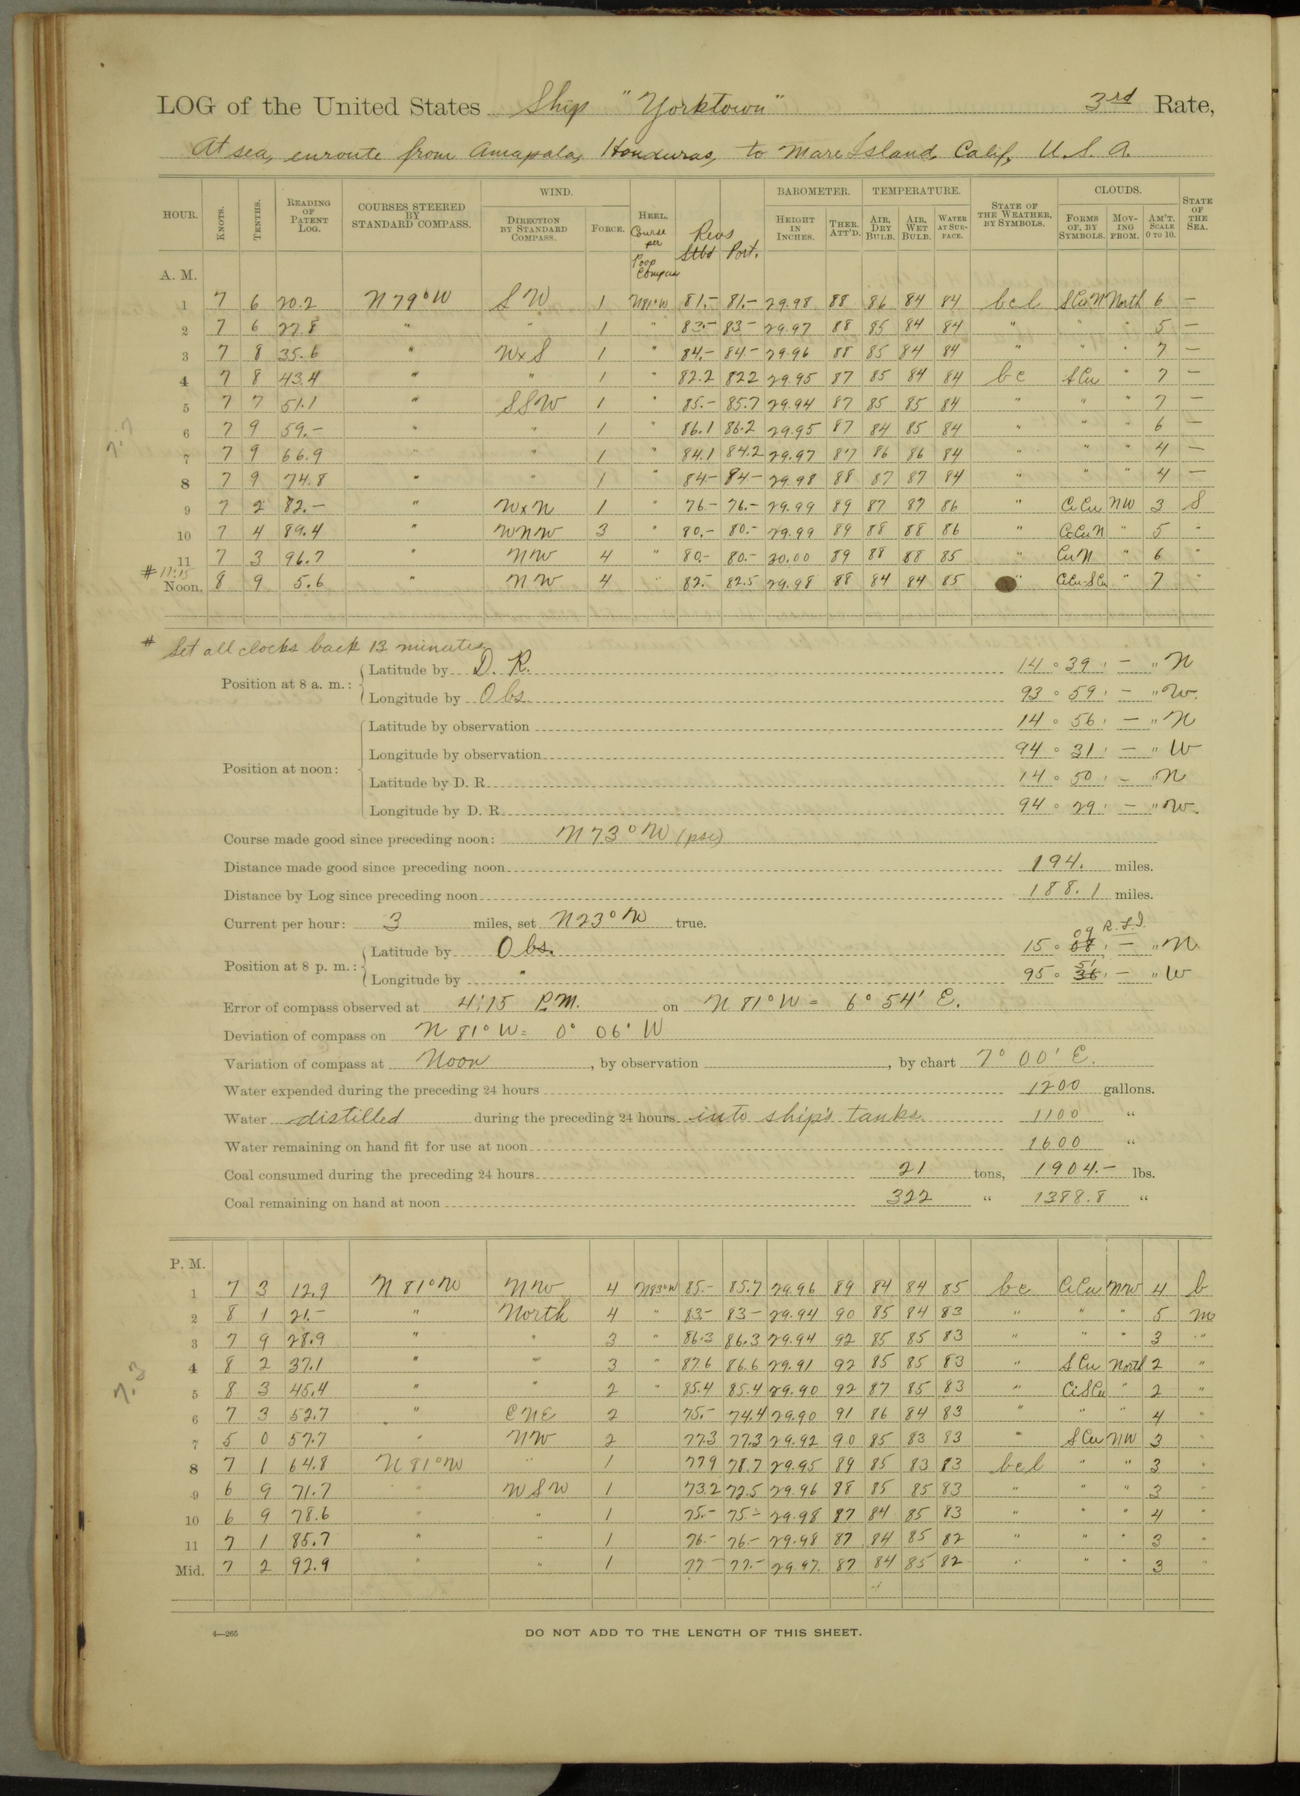 LOG of the United States Ship "Yorktown" 3rd Rate,
At sea, enroute from Amapala, Honduras, to Mare Island, Calif, U.S.A.
HOUR. KNOTS. TENTHS. READING OF PATENT LOG. COURSES STEERED BY STANDARD COMPASS. WIND. DIRECTION BY STANDARD COMPASS. FORCE. HEEL. Course per Poop Compass Revs Stbd Port. BAROMETER. HEIGHT IN INCHES. THER. ATT'D. TEMPERATURE. AIR, DRY BULB. AIR, WET BULB. WATER AT SURFACE. STATE OF THE WEATHER, BY SYMBOLS. CLOUDS. FORMS OF, BY SYMBOLS. MOVING FROM. AM'T. SCALE 0 TO 10. STATE OF THE SEA.
A. M.
1 7 6 20.2 N 79° W S W 1 N81°W 81.- 81.- 29.98 88 86 84 84 bcl S Cu N North 6 -
2 7 6 27.8 " " 1 " 83.- 83- 29.97 88 85 84 84 " " " 5 -
3 7 8 35.6 " WxS 1 " 84.- 84.- 29.96 88 85 84 84 " " " 7 -
4 7 8 43.4 " " 1 " 82.2 82.2 29.95 87 85 84 84 bc S Cu " 7 -
5 7 7 51.1 " SSW 1 " 85.- 85.7 29.94 87 85 85 84 " " " 7 -
6 7 9 59.- " " 1 " 86.1 86.2 29.95 87 84 85 84 " " " 6 -
7 7 9 66.9 " " 1 " 84.1 84.2 29.97 87 86 86 84 " " " 4 -
8 7 9 74.8 " " 1 " 84- 84- 29.98 88 87 87 84 " " " 4 -
9 7 2 82.- " WxN 1 " 76- 76.- 29.99 89 87 87 86 " Ci Cu NW 3 S
10 7 4 89.4 " WNW 3 " 80.- 80.- 29.99 89 88 88 86 " CiCu N " 5 "
11 7 3 96.7 " NW 4 " 80.- 80.- 30.00 89 88 88 85 " Cu N " 6 "
# 11:15
Noon. 8 9 5.6 " NW 4 " 82.- 82.5 29.98 88 84 84 85 " CiCu-SCu " 7 "
# Set all clocks back 13 minutes
Position at 8 a. m.: Latitude by D. R. 14 ° 39 ' - " N
Longitude by Obs 93 ° 59 ' - " W.
Position at noon: Latitude by observation 14 ° 56 ' - " N
Longitude by observation 94 ° 31 ' - " W
Latitude by D. R. 14 ° 50 ' - " N
Longitude by D. R. 94 ° 29 ' - " W.
Course made good since preceding noon: N 73° W (psc)
Distance made good since preceding noon 194. miles.
Distance by Log since preceding noon 188.1 miles.
Current per hour: 3 miles, set N 23° W true.
09 R.S.I.
Position at 8 p. m.: Latitude by Obs. 15 ° 07 ' - " N
51
Longitude by " 95 ° 36 ' - " W
Error of compass observed at 4:15 P.M. on N 81° W = 6° 54' E.
Deviation of compass on N 81° W = 0° 06' W
Variation of compass at Noon , by observation , by chart 7° 00' E.
Water expended during the preceding 24 hours 1200 gallons.
Water distilled during the preceding 24 hours into ship's tanks 1100 "
Water remaining on hand fit for use at noon 1600 "
Coal consumed during the preceding 24 hours 21 tons, 1904.- lbs.
Coal remaining on hand at noon 322 " 1388.8 "
P. M.
1 7 3 12.9 N 81° W NW 4 N83°W 85.- 85.7 29.96 89 84 84 85 bc CiCu NW 4 b
2 8 1 21.- " North 4 " 83- 83- 29.94 90 85 84 83 " " " 5 m
3 7 9 28.9 " " 3 " 86.3 86.3 29.94 92 85 85 83 " " " 3 "
7.3
4 8 2 37.1 " " 3 " 87.6 86.6 29.91 92 85 85 83 " S Cu North 2 "
5 8 3 45.4 " " 2 " 85.4 85.4 29.90 92 87 85 83 " CiSCu " 2 "
6 7 3 52.7 " ENE 2 75.- 74.4 29.90 91 86 84 83 " " " 4 "
7 5 0 57.7 " NW 2 77.3 77.3 29.92 90 85 83 83 " S Cu NW 3 "
8 7 1 64.8 N 81° W " 1 77.9 78.7 29.95 89 85 83 83 bcl " " 3 "
9 6 9 71.7 " WSW 1 73.2 72.5 29.96 88 85 85 83 " " " 3 "
10 6 9 78.6 " " 1 75.- 75- 29.98 87 84 85 83 " " " 4 "
11 7 1 85.7 " " 1 76.- 76.- 29.98 87 84 85 82 " " " 3 "
Mid. 7 2 92.9 " " 1 77- 77.- 29.97 87 84 85 82 " " " 3 "
4—265
DO NOT ADD TO THE LENGTH OF THIS SHEET.